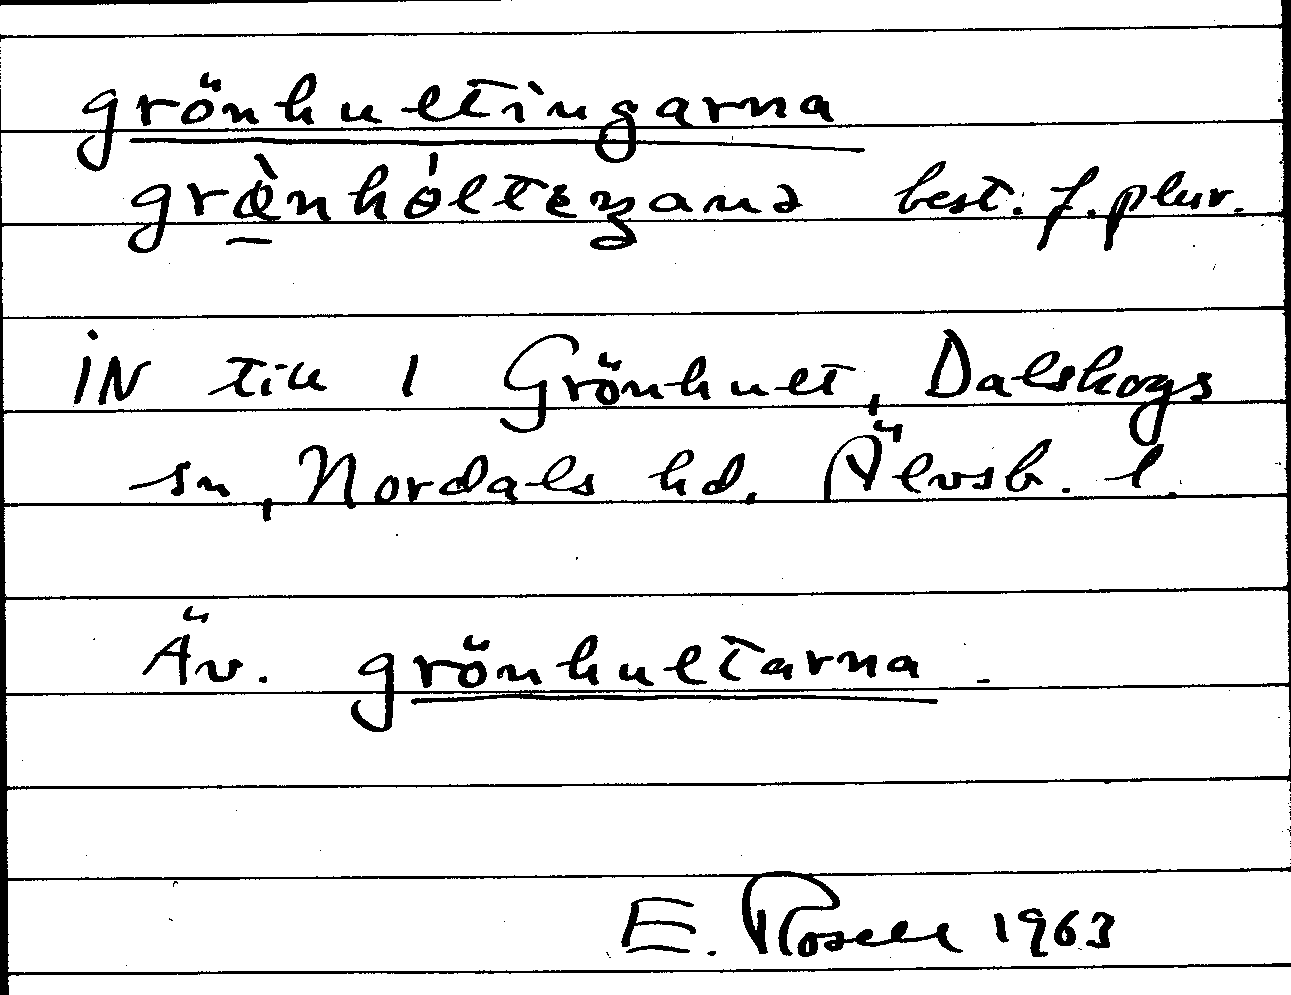 grönhultingarna
grö̀nhólteŋanə best. f. plur.
iN till 1 Grönhult, Dalskogs
sn, Nordals hd. Älvsb. l.
Äv. grönhultarna.
E. Rosell 1963